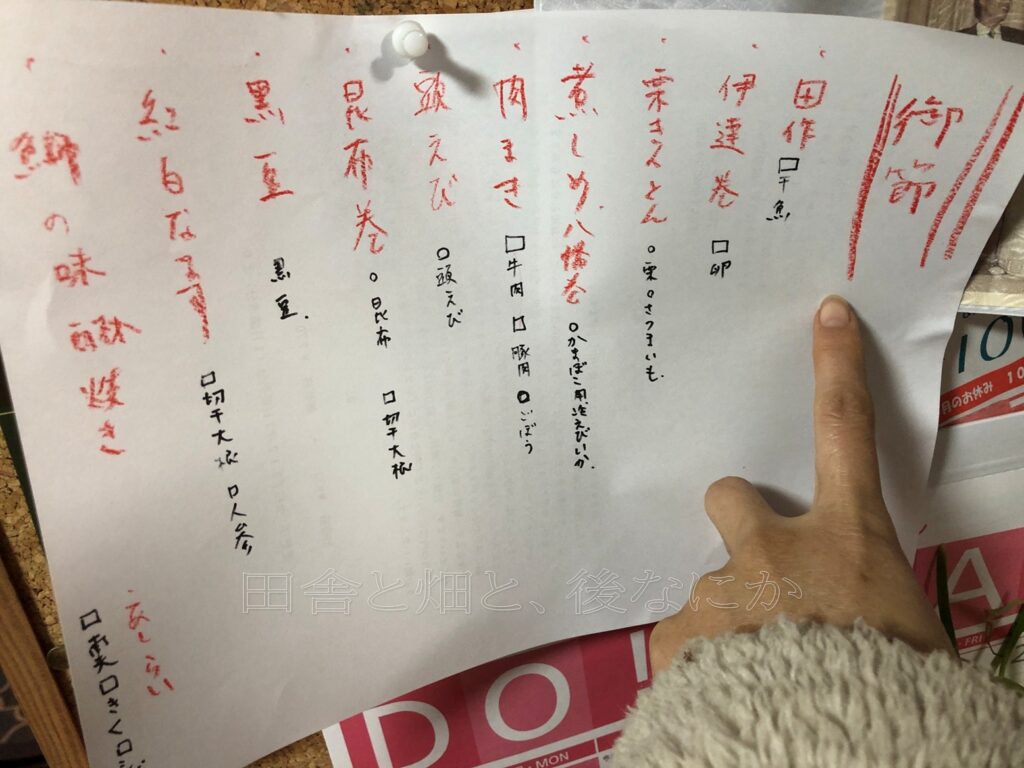 御節
・田作
□干魚
・伊達巻
□卵
・栗きんとん
○栗○さつまいも
・煮しめ、八幡巻
○かまぼこ用、冷えびいか
・肉まき
□牛肉 □豚肉 ○ごぼう
・頭えび
○頭えび
・昆布巻
○昆布 □切干大根
・黒豆
黒豆.
・紅白なます
□切干大根 □人参
・の味噌焼き
あしらい
□きく□
田舎と畑と、後なにか
DO
A
MON
FRI
10
月のお休み 10